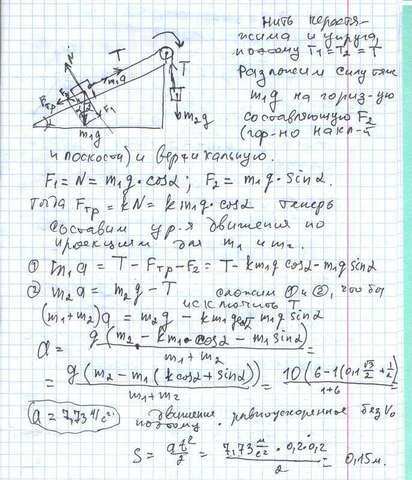 Нить нерастя-
жима и упруга,
поэтому T₁=T₂=T
Разложим силу тяж
m₁g на гориз-ую
составляющую F₂
(гор-но накл-й
и плоскости) и вертикальную.
N
T
T
m₁g
Fтр
F₂
F₁
T
α
m₁g
m₂g
F₁ = N = m₁g·cosα; F₂ = m₁g·sinα.
Тогда Fтр = kN = km₁g·cosα теперь
составим ур-я движения по
проекциям для m₁ и m₂.
① m₁a = T - Fтр - F₂ = T - km₁g cosα - m₁g sinα
② m₂a = m₂g - T сложим ① и ②, что бы
исключить T
(m₁+m₂)a = m₂g - km₁g cosα - m₁g sinα
a = g(m₂ - km₁cosα - m₁sinα) / (m₁+m₂) =
= g(m₂ - m₁(kcosα + sinα)) / (m₁+m₂) = 10(6-1(0,1 √3/2 + 1/2) / (1+6)
a = 7,73 м/с². движение равноускоренное без V₀
поэтому
S = at²/2 = 7,73 м/с² · 0,2·0,2 / 2 = 0,15м.